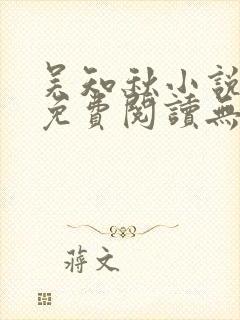 吴知秋小説
免費閱讀無
蔣文